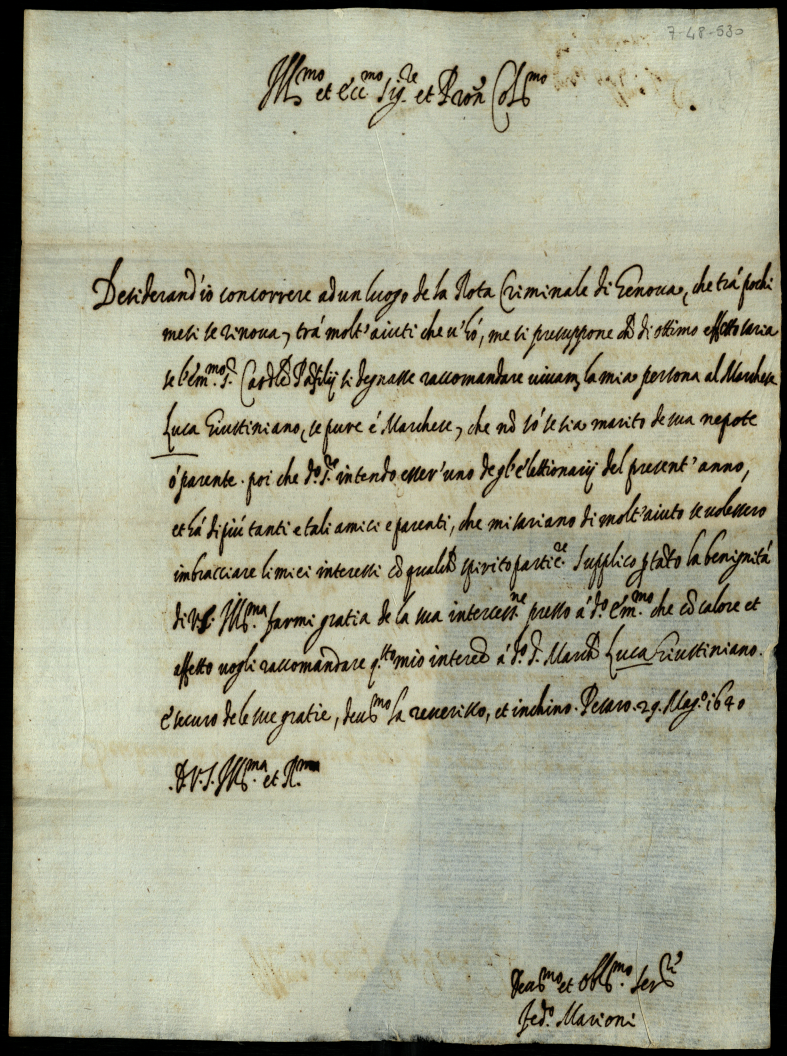 7-48-530
Ill.mo et Ecc.mo Sig.re et Pron Col.mo
Desiderand'io concorrere ad un luogo de la Rota Criminale di Genova, che trá pochi
mesi se rinova, trá molt'aiuti che v'hó, me si presuppone ch di ottimo effetto saria
se l'em.mo S.r Card.le Pafilij si degnasse raccomandare vivam. la mia persona al Marchese
Luca Giustiniano, se pure é Marchese, che nō só se sia marito de sua nepote
ó parente. poi che d.o S.r intendo esser'uno de gl'elettionarij del present'anno,
et há di piú tanti e tali amici e parenti, che mi sariano di molt'aiuto se volessero
imbracciare li miei interessi cō qualch spirito partic.re Supplico ptāto la benignitá
di V.S. Ill.ma farmi gratia de la sua intercess.ne presso á d.o em.mo che cō calore et
affetto vogli raccomandare q.sto mio interes á d.o S. March Luca Giustiniano.
e securo de le sue gratie, deus.mo la reverisco, et inchino. Pesaro. 29. Mag.o 1640
.D.V.S. Ill.ma et R.ma
Deus.mo et Obl.mo Ser.re
Fed.o Marioni